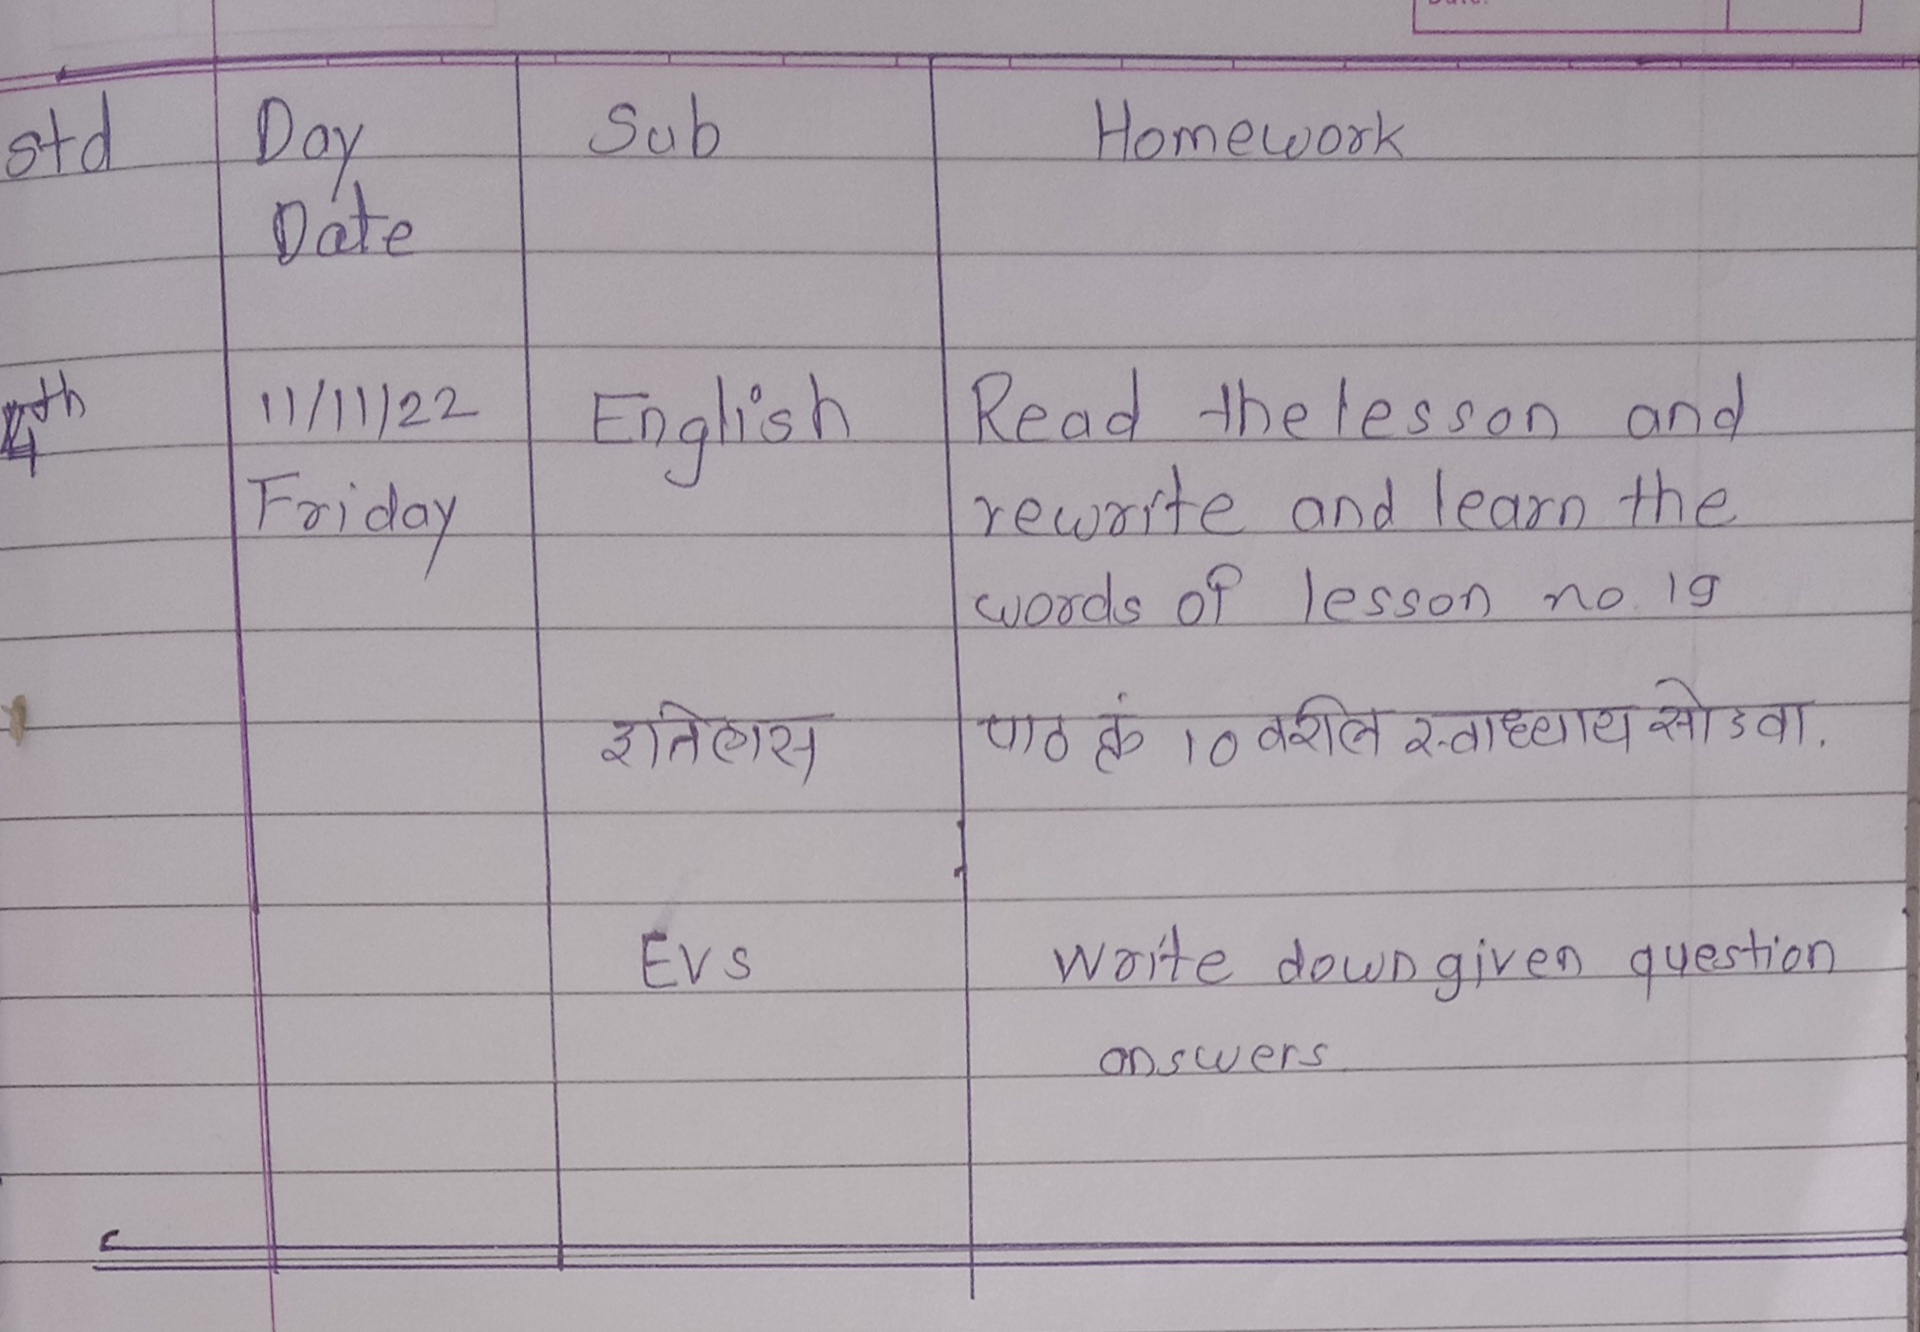 Date:
Std Day Sub Homework
Date
4th 11/11/22 English Read the lesson and
Friday rewrite and learn the
words of lesson no. 19
इतिहास पाठ क्रं 10 वरील स्वाध्याय सोडवा.
Evs Write down given question
answers